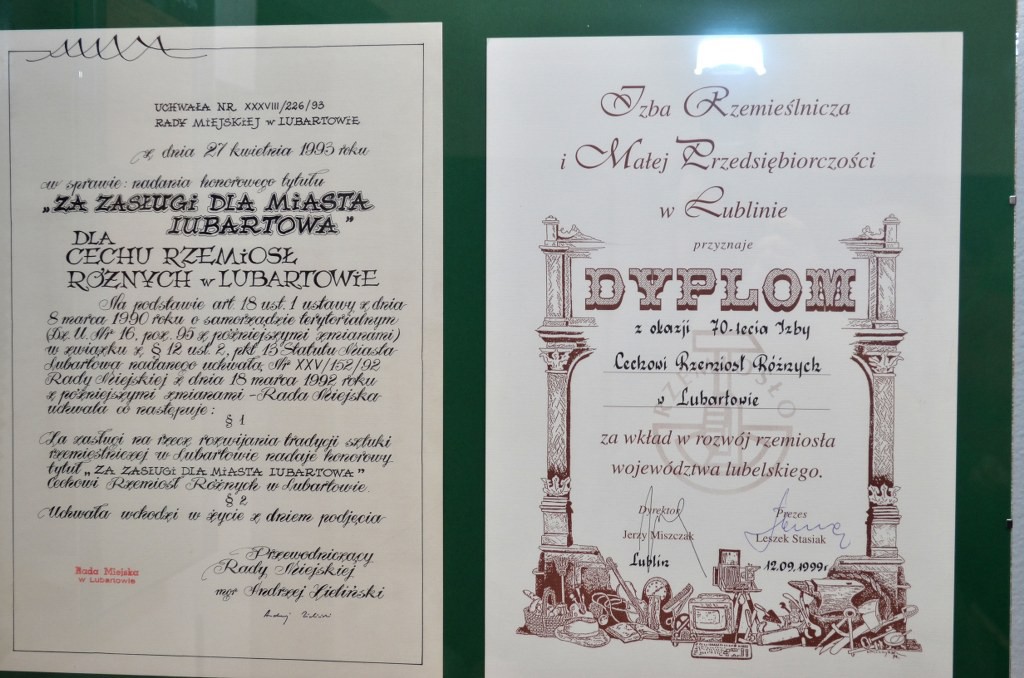 UCHWAŁA NR XXXVIII/226/93
RADY MIEJSKIEJ w LUBARTOWIE
z dnia 27 kwietnia 1993 roku
w sprawie: nadania honorowego tytułu
„ZA ZASŁUGI DLA MIASTA
LUBARTOWA"
DLA
CECHU RZEMIOSŁ
RÓŻNYCH w LUBARTOWIE
Na podstawie art. 18 ust. 1 ustawy z dnia
8 marca 1990 roku o samorządzie terytorialnym
(Dz. U. Nr 16, poz. 95 z późniejszymi zmianami)
w związku z § 12 ust. 2, pkt 13 Statutu Miasta
Lubartowa nadanego uchwałą Nr XXV/152/92
Rady Miejskiej z dnia 18 marca 1992 roku
z późniejszymi zmianami - Rada Miejska
uchwala co następuje:
§ 1
Za zasługi na rzecz rozwijania tradycji sztuki
rzemieślniczej w Lubartowie nadaje honorowy
tytuł „ZA ZASŁUGI DLA MIASTA LUBARTOWA"
Cechowi Rzemiosł Różnych w Lubartowie.
§ 2
Uchwała wchodzi w życie z dniem podjęcia
Przewodniczący
Rady Miejskiej
mgr Andrzej Zieliński
Rada Miejska
w Lubartowie
Izba Rzemieślnicza
i Małej Przedsiębiorczości
w Lublinie
przyznaje
DYPLOM
z okazji 70-lecia Izby
Cechowi Rzemiosł Różnych
w Lubartowie
RZEMIOSŁO
za wkład w rozwój rzemiosła
województwa lubelskiego.
Dyrektor Prezes
Jerzy Miszczak Leszek Stasiak
Lublin 12.09.1999r.